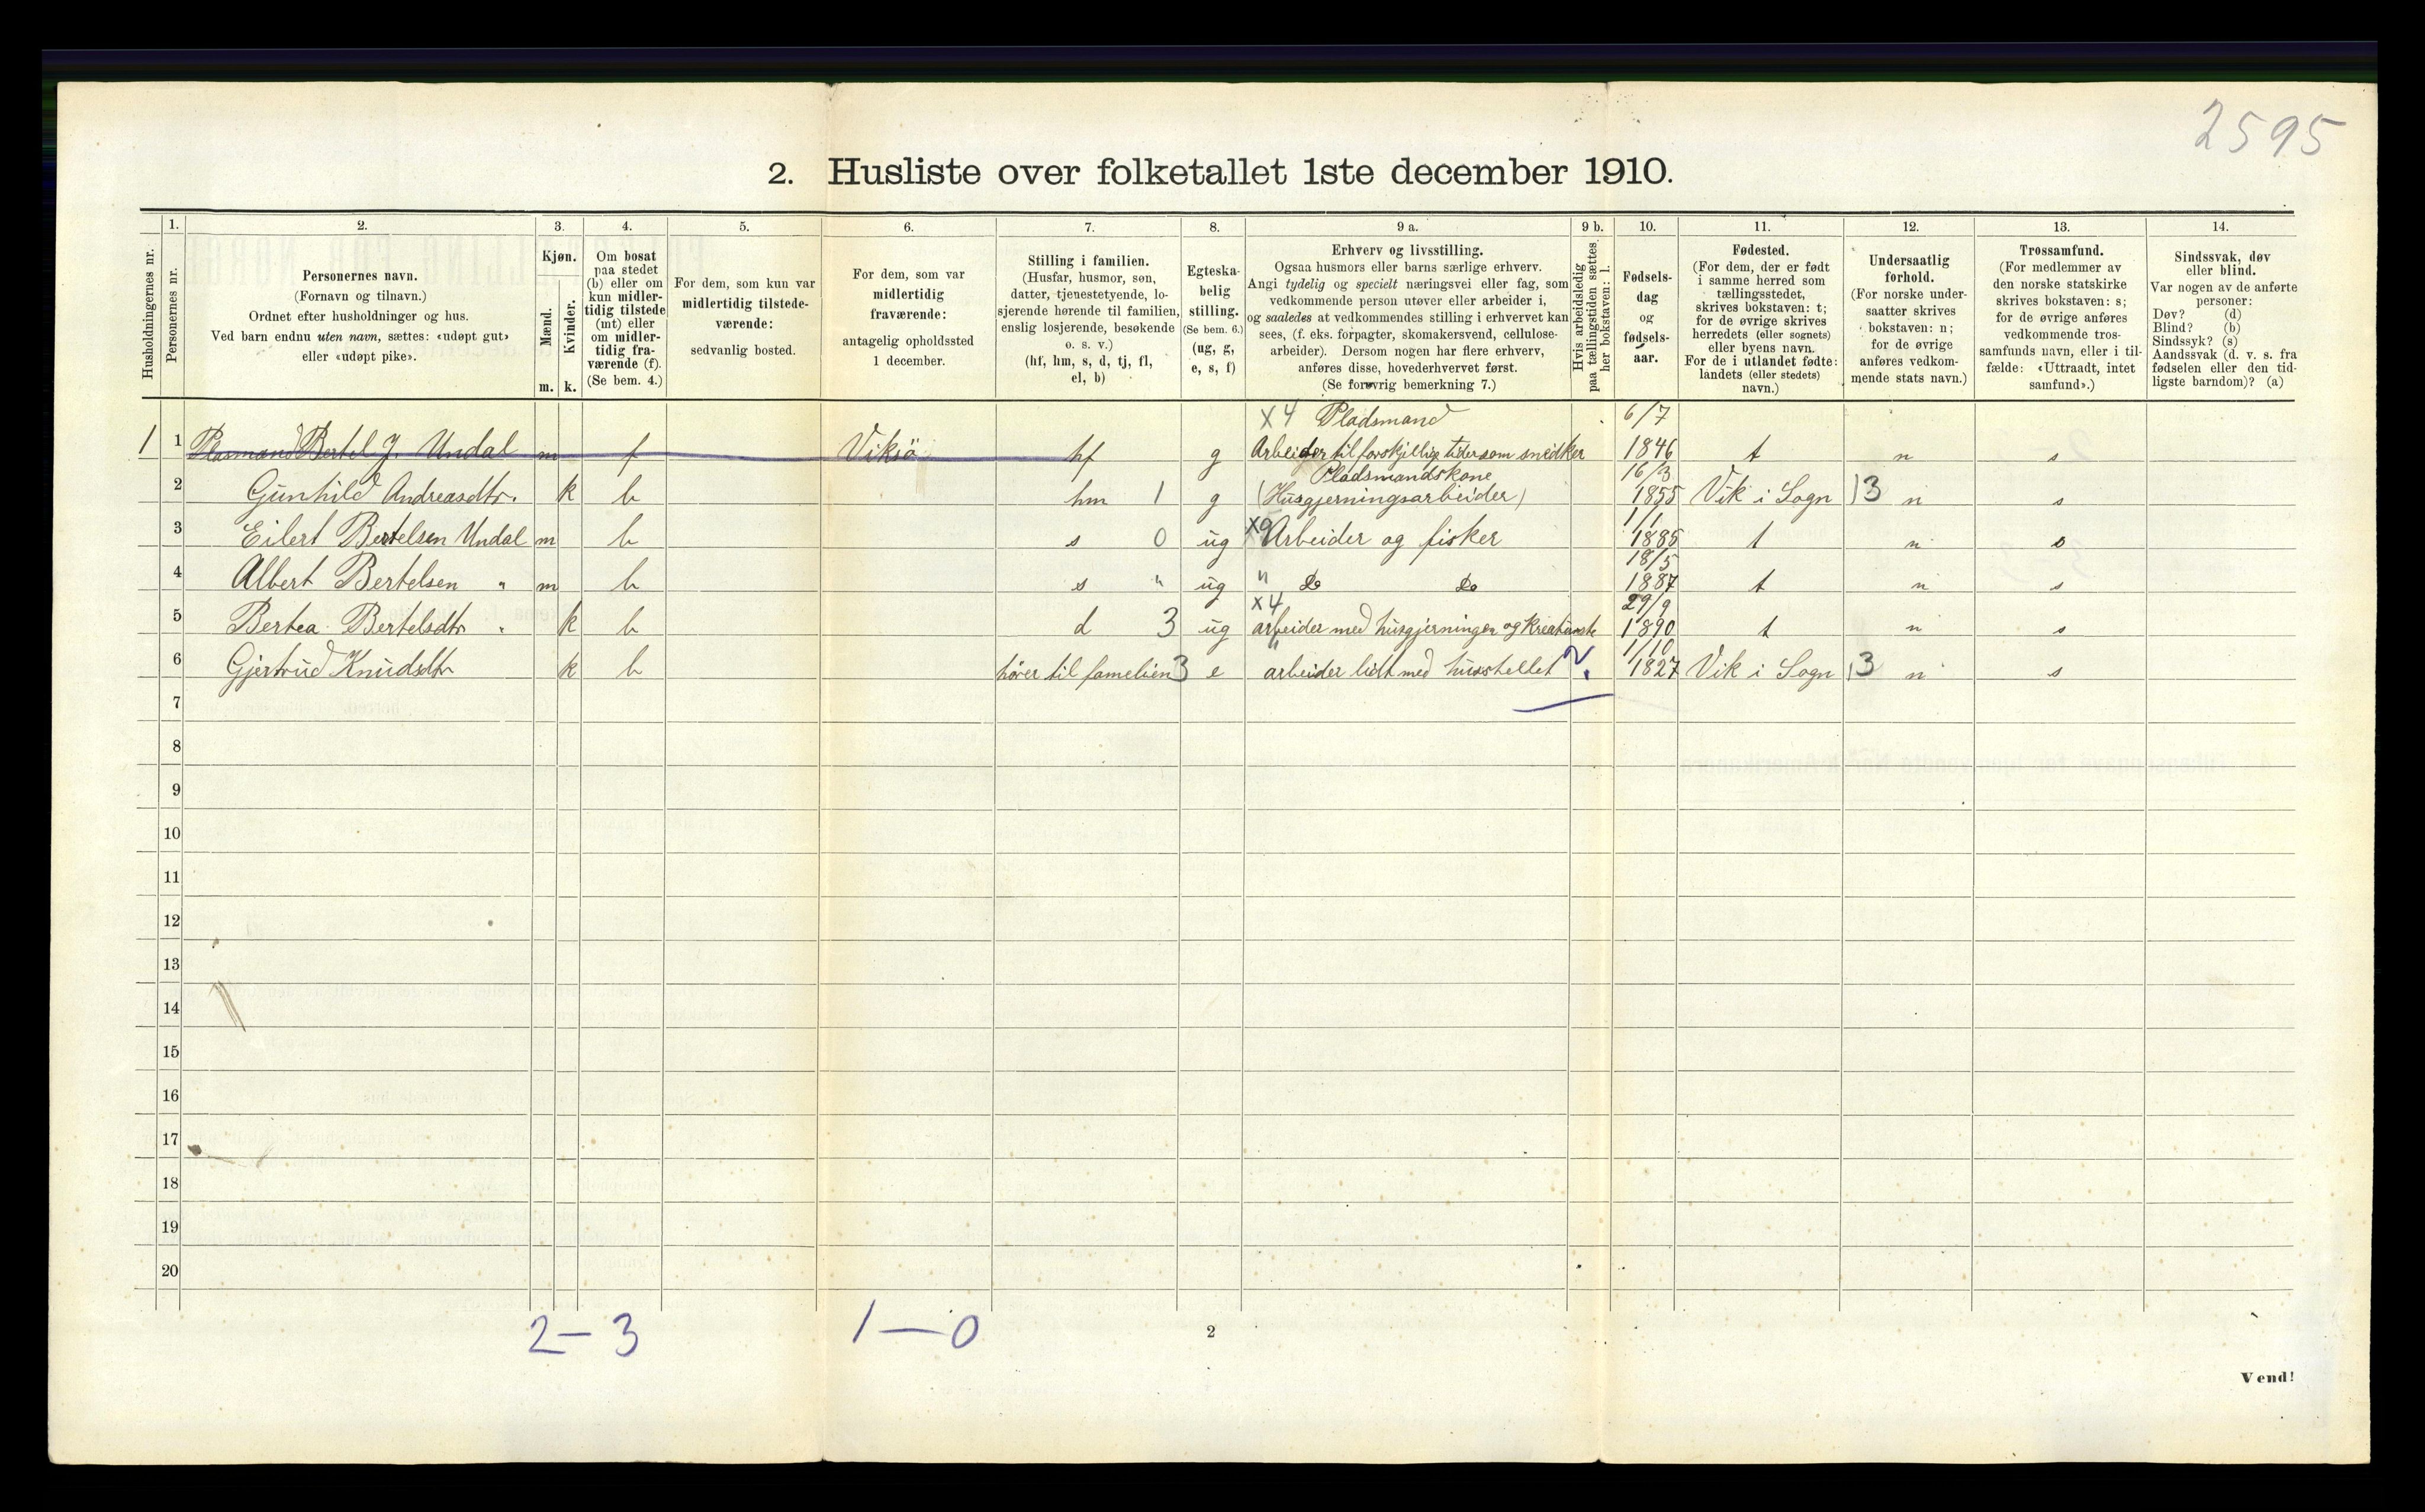 2595
2. Husliste over folketallet 1ste december 1910.
Husholdningernes nr.
1.
Personernes nr.
2.
Personernes navn.
(Fornavn og tilnavn.)
Ordnet efter husholdninger og hus.
Ved barn endnu uten navn, sættes: «udøpt gut»
eller «udøpt pike».
3.
Kjøn.
Mænd.
Kvinder.
m. k.
4.
Om bosat
paa stedet
(b) eller om
kun midler-
tidig tilstede
(mt) eller
om midler-
tidig fra-
værende (f).
(Se bem. 4.)
5.
For dem, som kun var
midlertidig tilstede-
værende:
sedvanlig bosted.
6.
For dem, som var
midlertidig
fraværende:
antagelig opholdssted
1 december.
7.
Stilling i familien.
(Husfar, husmor, søn,
datter, tjenestetyende, lo-
sjerende hørende til familien,
enslig losjerende, besøkende
o. s. v.)
(hf, hm, s, d, tj, fl,
el, b)
8.
Egteska-
belig
stilling.
(Se bem. 6.)
(ug, g,
e, s, f)
9 a.
Erhverv og livsstilling.
Ogsaa husmors eller barns særlige erhverv.
Angi tydelig og specielt næringsvei eller fag, som
vedkommende person utøver eller arbeider i,
og saaledes at vedkommendes stilling i erhvervet kan
sees, (f. eks. forpagter, skomakersvend, cellulose-
arbeider). Dersom nogen har flere erhverv,
anføres disse, hovederhvervet først.
(Se forøvrig bemerkning 7.)
9 b.
Hvis arbeidsledig
paa tællingstiden sættes
her bokstaven: l.
10.
Fødsels-
dag
og
fødsels-
aar.
11.
Fødested.
(For dem, der er født
i samme herred som
tællingsstedet,
skrives bokstaven: t;
for de øvrige skrives
herredets (eller sognets)
eller byens navn.
For de i utlandet fødte:
landets (eller stedets)
navn.)
12.
Undersaatlig
forhold.
(For norske under-
saatter skrives
bokstaven: n;
for de øvrige
anføres vedkom-
mende stats navn.)
13.
Trossamfund.
(For medlemmer av
den norske statskirke
skrives bokstaven: s;
for de øvrige anføres
vedkommende tros-
samfunds navn, eller i til-
fælde: «Uttraadt, intet
samfund».)
14.
Sindssvak, døv
eller blind.
Var nogen av de anførte
personer:
Døv? (d)
Blind? (b)
Sindssyk? (s)
Aandssvak (d. v. s. fra
fødselen eller den tid-
ligste barndom)? (a)
X4 Pladsmand 6/7
1 1 Plasmand Bertel J. Undal m f Viksö hf g Arbeider til forskjellige tider som snedker 1846 t n s
Pladsmandskone 16/3
2 Gunhild Andreasdtr. k b hm 1 g (Husgjerningsarbeider) 1855 Vik i Sogn 13 n s
1/1
3 Eilert Bertelsen Undal m b s 0 ug X9 Arbeider og fisker 1885 t n s
18/5
4 Albert Bertelsen " m b s " ug " Do Do 1887 t n s
X4 29/9
5 Bertea Bertelsdtr " k b d 3 ug arbeider med husgjerninger og 1890 t n s
" 1/10
6 Gjertrud Knudsdtr k b hører til famelien 3 e arbeider lidt med husstellet 1827 Vik i Sogn 13 n s
7
8
9
10
11
12
13
14
15
16
17
18
19
20
2—3 1—0
2
Vend!